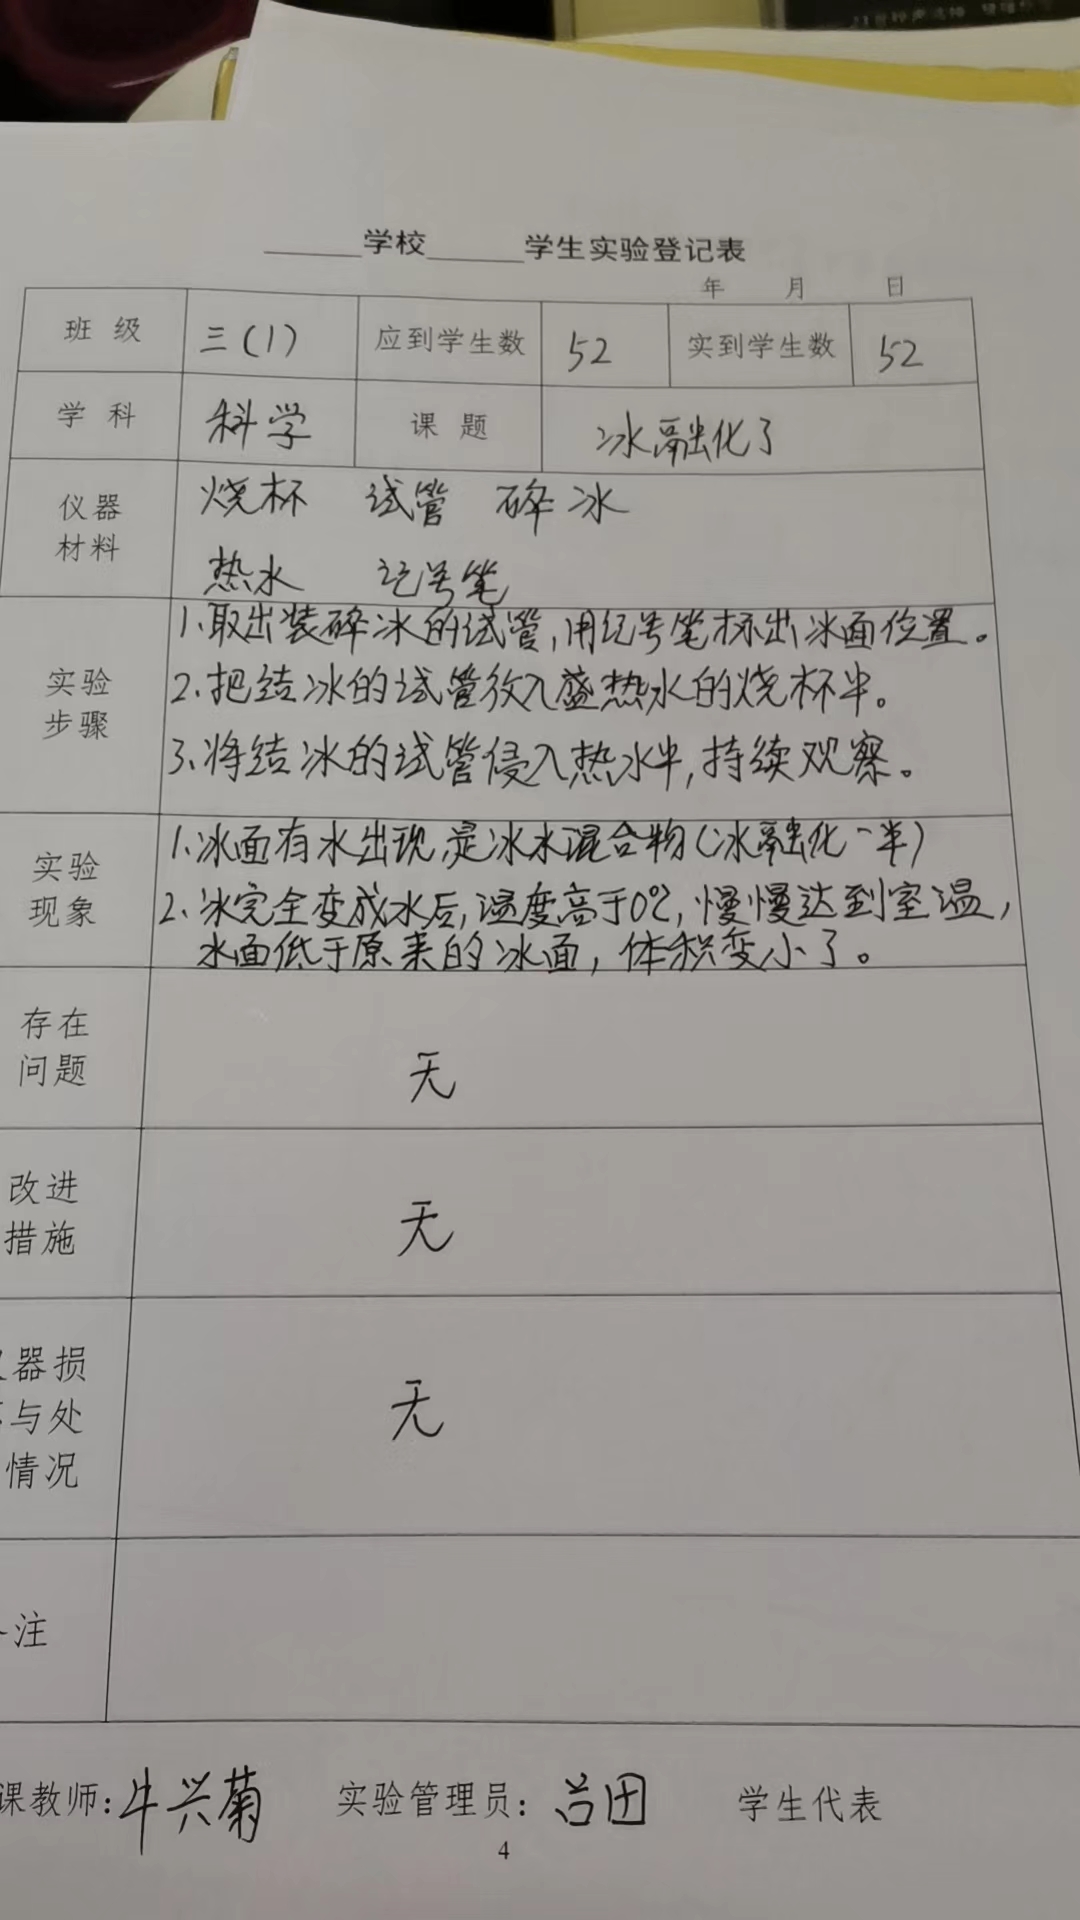 ______学校______学生实验登记表
年 月 日
班级 三(1) 应到学生数 52 实到学生数 52
学科 科学 课题 冰融化了
仪器
材料
烧杯 试管 碎冰
热水 记号笔
实验
步骤
1.取出装碎冰的试管,用记号笔标出冰面位置。
2.把结冰的试管放入盛热水的烧杯中。
3.将结冰的试管侵入热水中,持续观察。
实验
现象
1.冰面有水出现,是冰水混合物(冰融化一半)
2.冰完全变成水后,温度高于0℃,慢慢达到室温,
水面低于原来的冰面,体积变小了。
存在
问题
无
改进
措施
无
器损
与处
情况
无
注
课教师:牛兴菊 实验管理员: 学生代表
4